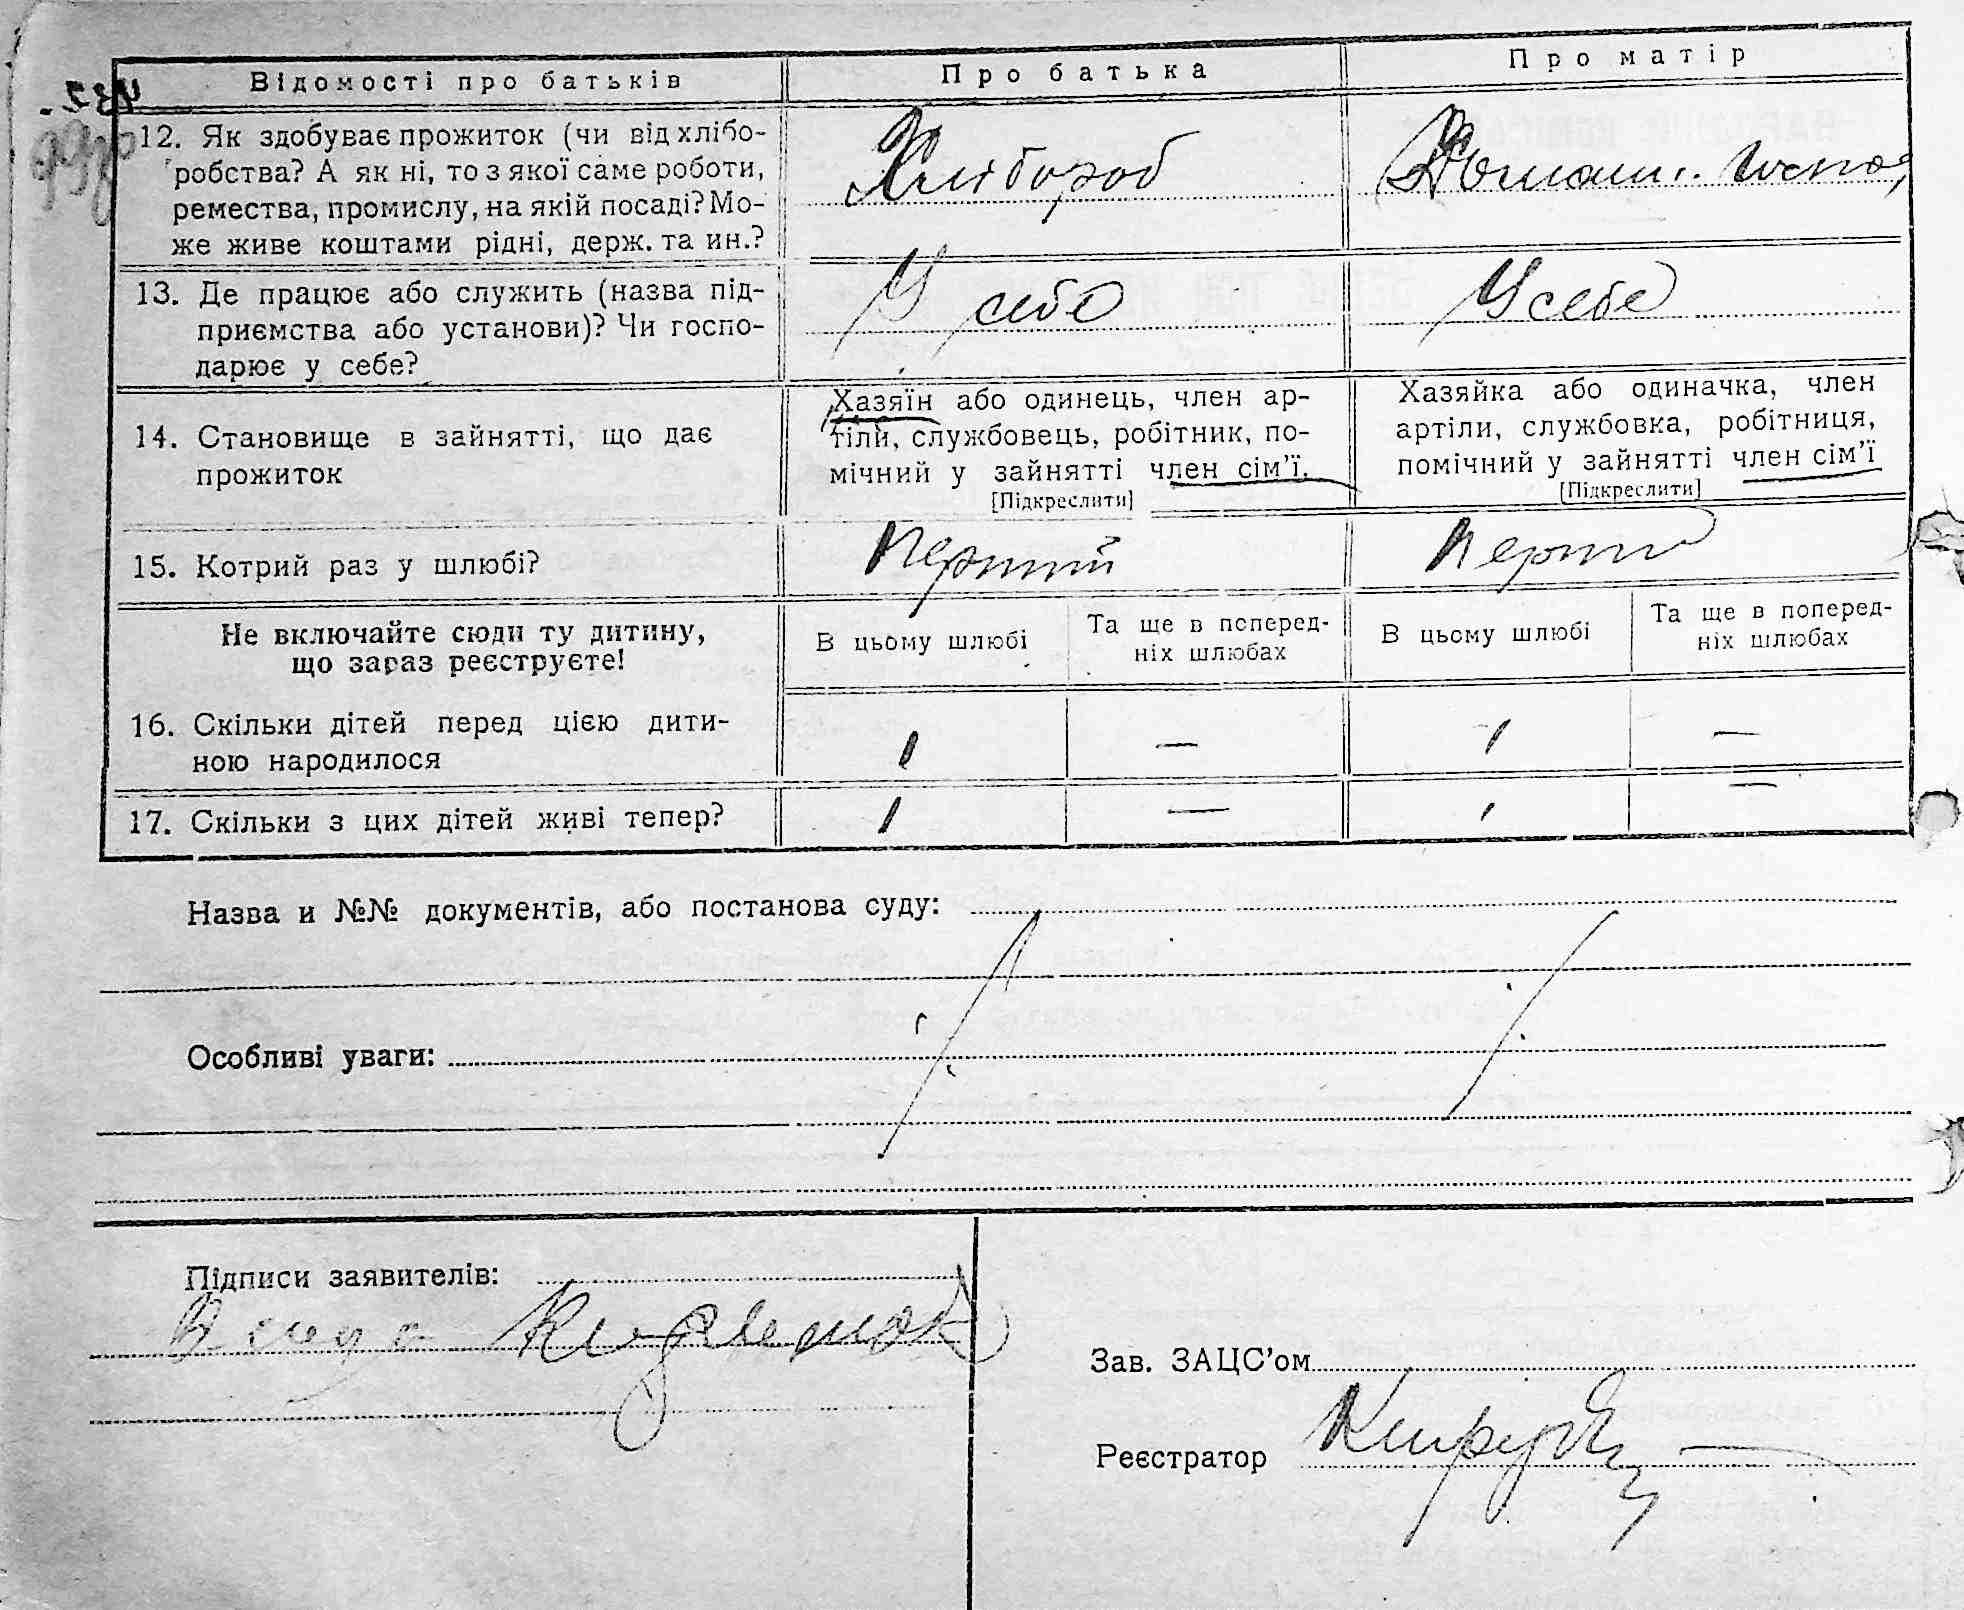 Відомості про батьків Про батька Про матір
12. Як здобуває прожиток (чи від хлібо-
робства? А як ні, то з якої саме роботи,
ремества, промислу, на якій посаді? Мо-
же живе коштами рідні, держ. та ин.?
Хлібороб
Домашн. госпо
13. Де працює або служить (назва під-
приємства або установи)? Чи госпо-
дарює у себе?
У себе
У себе
14. Становище в зайнятті, що дає
прожиток
Хазяїн або одинець, член ар-
тіли, службовець, робітник, по-
мічний у зайнятті член сім’ї.
[Підкреслити]
Хазяйка або одиначка, член
артіли, службовка, робітниця,
помічний у зайнятті член сім’ї
[Підкреслити]
15. Котрий раз у шлюбі?
Перший
Перший
Не включайте сюди ту дитину,
що зараз реєструєте!
В цьому шлюбі
Та ще в поперед-
ніх шлюбах
В цьому шлюбі
Та ще в поперед-
ніх шлюбах
16. Скільки дітей перед цією дити-
ною народилося
1 — 1 —
17. Скільки з цих дітей живі тепер?
1 — 1 —
Назва и №№ документів, або постанова суду:
Особливі уваги:
Підписи заявителів:
Зав. ЗАЦС’ом
Реєстратор